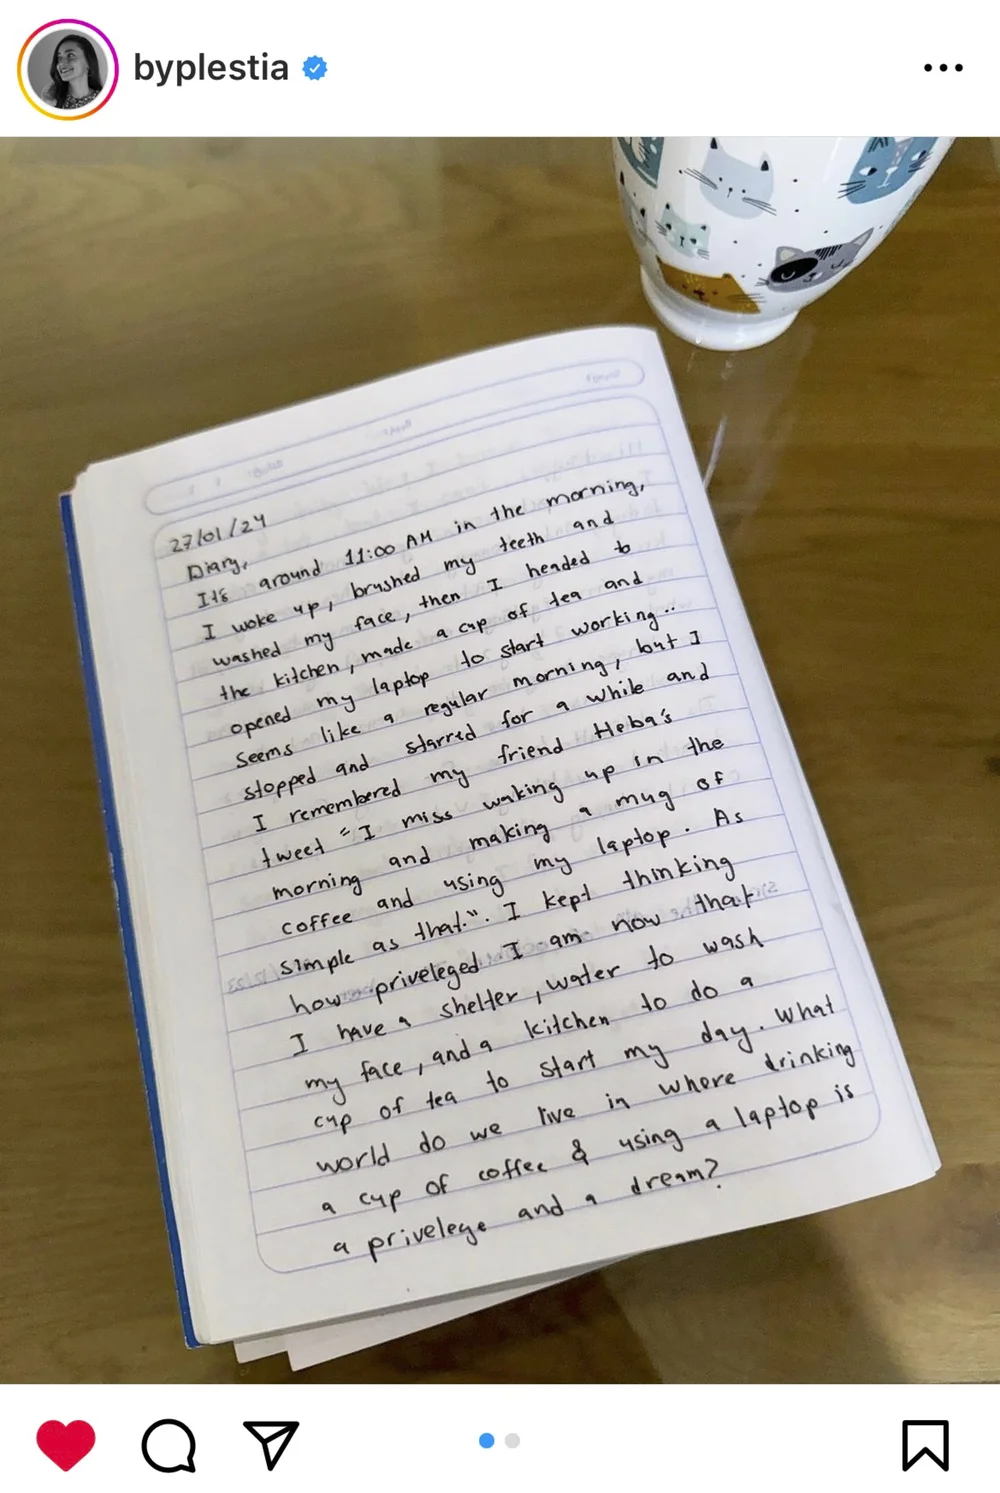 byplestia
27/01/24
Diary,
Its around 11:00 AM in the morning,
I woke up, brushed my teeth and
washed my face, then I headed to
the kitchen, made a cup of tea and
opened my laptop to start working..
seems like a regular morning, but I
stopped and starred for a while and
I remembered my friend Heba's
tweet "I miss waking up in the
morning and making a mug of
coffee and using my laptop. As
simple as that.". I kept thinking
how priveleged I am now that
I have a shelter, water to wash
my face, and a kitchen to do a
cup of tea to start my day. What
world do we live in where drinking
a cup of coffee & using a laptop is
a privelege and a dream?